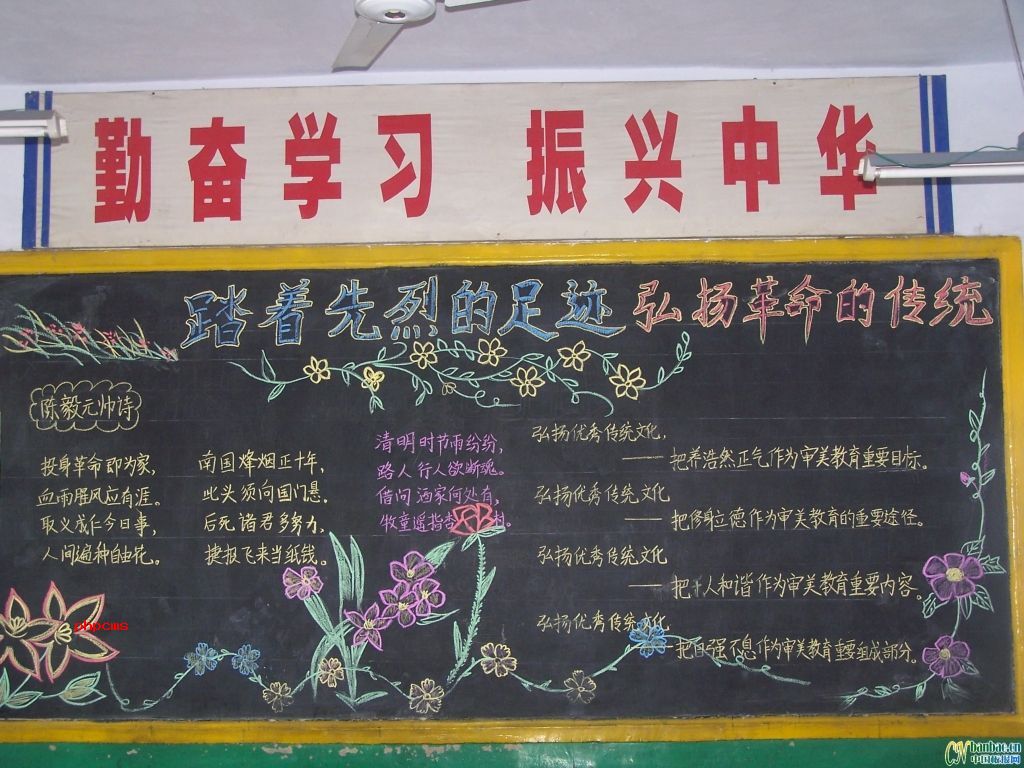 勤奋学习 振兴中华
踏着先烈的足迹 弘扬革命的传统
陈毅元帅诗
投身革命即为家,
血雨腥风应有涯。
取义成仁今日事,
人间遍种自由花。
南国烽烟正十年,
此头须向国门悬。
后死诸君多努力,
捷报飞来当纸钱。
清明时节雨纷纷,
路人行人欲断魂。
借问酒家何处有,
牧童遥指杏 村。
弘扬优秀传统文化,
——把养浩然正气作为审美教育重要目标。
弘扬优秀传统文化
——把修身立德作为审美教育的重要途径。
弘扬优秀传统文化
——把 人和谐作为审美教育重要内容。
弘扬优秀传统文化
——把自强不息作为审美教育重要组成部分。
phpcms
CN banbao.cn
中国板报网